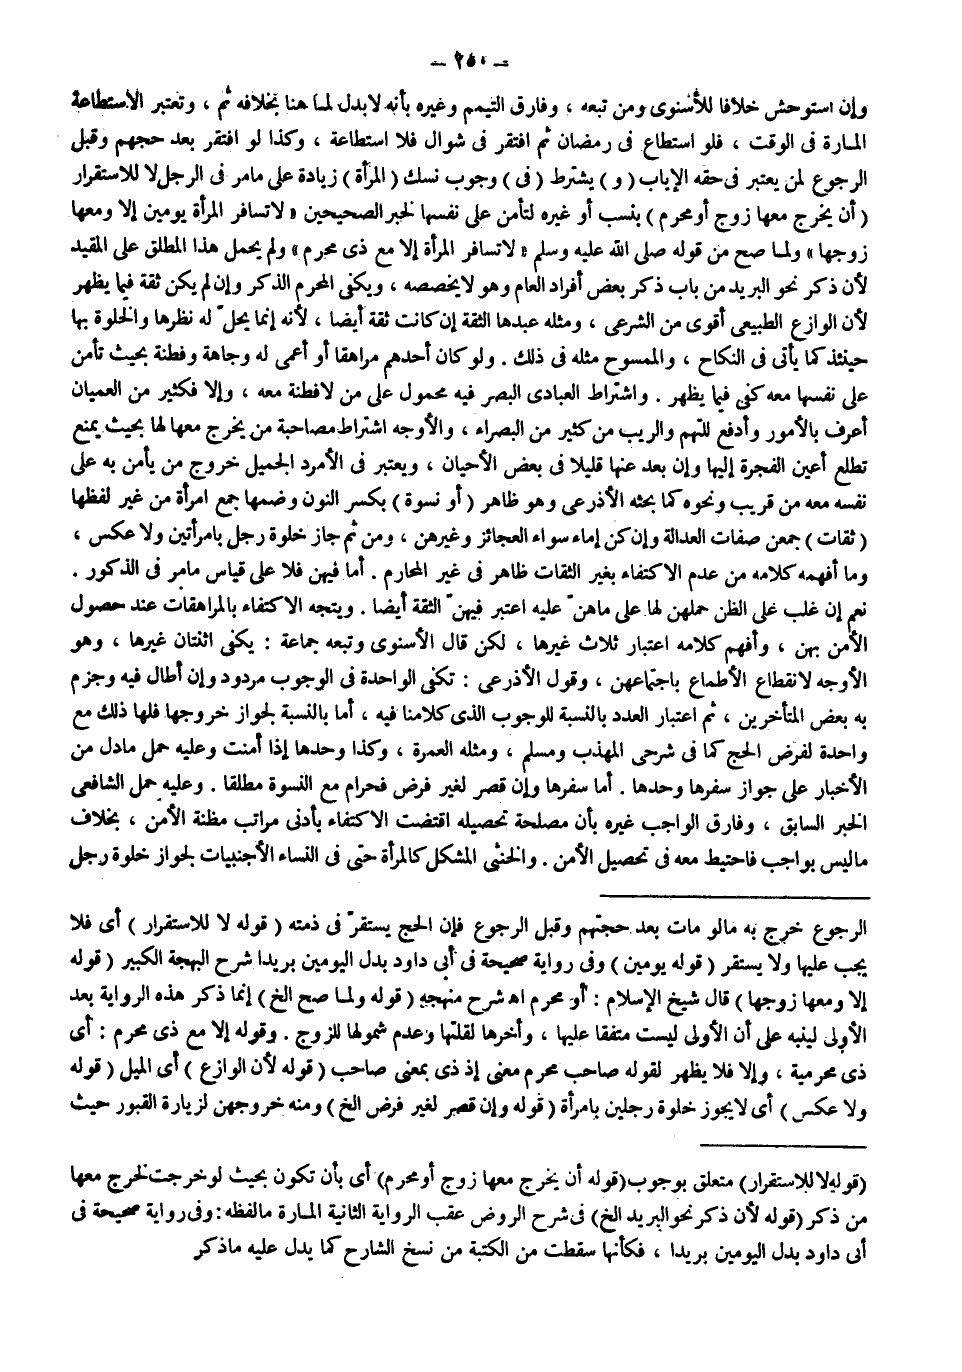 – ٢٥٠ –
وإن استوحش خلافا للأسنوى ومن تبعه ، وفارق التيمم وغيره بأنه لابدل لما هنا بخلافه ثم ، وتعتبر الاستطاعة
المارة فى الوقت ، فلو استطاع فى رمضان ثم افتقر فى شوال فلا استطاعة ، وكذا لو افتقر بعد حجهم وقبل
الرجوع لمن يعتبر فى حقه الإياب ( و ) يشترط ( فى ) وجوب نسك ( المرأة ) زيادة على مامر فى الرجل لا للاستقرار
( أن يخرج معها زوج أو محرم ) بنسب أو غيره لتأمن على نفسها لخبر الصحيحين « لاتسافر المرأة يومين إلا ومعها
زوجها » ولما صح من قوله صلى الله عليه وسلم « لاتسافر المرأة إلا مع ذى محرم » ولم يحمل هذا المطلق على المقيد
لأن ذكر نحو البريد من باب ذكر بعض أفراد العام وهو لايخصصه ، ويكفى المحرم الذكر وإن لم يكن ثقة فيما يظهر
لأن الوازع الطبيعى أقوى من الشرعى ، ومثله عبدها الثقة إن كانت ثقة أيضا ، لأنه إنما يحلّ له نظرها والخلوة بها
حينئذ كما يأتى فى النكاح ، والممسوح مثله فى ذلك . ولو كان أحدهم مراهقا أو أعمى له وجاهة وفطنة بحيث تأمن
على نفسها معه كفى فيما يظهر . واشتراط العبادى البصر فيه محمول على من لافطنة معه ، وإلا فكثير من العميان
أعرف بالأمور وأدفع للتهم والريب من كثير من البصراء ، والأوجه اشتراط مصاحبة من يخرج معها لها بحيث يمنع
تطلع أعين الفجرة إليها وإن بعد عنها قليلا فى بعض الأحيان ، ويعتبر فى الأمرد الجميل خروج من يأمن به على
نفسه معه من قريب ونحوه كما بحثه الأذرعى وهو ظاهر ( أو نسوة ) بكسر النون وضمها جمع امرأة من غير لفظها
( ثقات ) جمعن صفات العدالة وإن كن إماء سواء العجائز وغيرهن ، ومن ثم جاز خلوة رجل بامرأتين ولا عكس ،
وما أفهمه كلامه من عدم الاكتفاء بغير الثقات ظاهر فى غير المحارم . أما فيهن فلا على قياس مامر فى الذكور .
نعم إن غلب على الظن حملهن لها على ماهنّ عليه اعتبر فيهنّ الثقة أيضا . ويتجه الاكتفاء بالمراهقات عند حصول
الأمن بهن ، وأفهم كلامه اعتبار ثلاث غيرها ، لكن قال الأسنوى وتبعه جماعة : يكفى اثنتان غيرها ، وهو
الأوجه لانقطاع الأطماع باجتماعهن ، وقول الأذرعى : تكفى الواحدة فى الوجوب مردود وإن أطال فيه وجزم
به بعض المتأخرين ، ثم اعتبار العدد بالنسبة للوجوب الذى كلامنا فيه ، أما بالنسبة لجواز خروجها فلها ذلك مع
واحدة لفرض الحج كما فى شرحى المهذب ومسلم ، ومثله العمرة ، وكذا وحدها إذا أمنت وعليه حمل مادل من
الأخبار على جواز سفرها وحدها . أما سفرها وإن قصر لغير فرض فحرام مع النسوة مطلقا . وعليه حمل الشافعى
الخبر السابق ، وفارق الواجب غيره بأن مصلحة تحصيله اقتضت الاكتفاء بأدنى مراتب مظنة الأمن ، بخلاف
ماليس بواجب فاحتيط معه فى تحصيل الأمن . والخنثى المشكل كالمرأة حتى فى النساء الأجنبيات لجواز خلوة رجل
الرجوع خرج به مالو مات بعد حجتهم وقبل الرجوع فإن الحج يستقرّ فى ذمته ( قوله لا للاستقرار ) أى فلا
يجب عليها ولا يستقر ( قوله يومين ) وفى رواية صحيحة فى أبى داود بدل اليومين بريدا شرح البهجة الكبير ( قوله
إلا ومعها زوجها ) قال شيخ الإسلام : أو محرم اه شرح منهجه ( قوله ولما صح الخ ) إنما ذكر هذه الرواية بعد
الأولى لينبه على أن الأولى ليست متفقا عليها ، وأخرها لقلتها وعدم شمولها للزوج . وقوله إلا مع ذى محرم : أى
ذى محرمية ، وإلا فلا يظهر لقوله صاحب محرم معنى إذ ذى بمعنى صاحب ( قوله لأن الوازع ) أى الميل ( قوله
ولا عكس ) أى لايجوز خلوة رجلين بامرأة ( قوله وإن قصر لغير فرض الخ ) ومنه خروجهن لزيارة القبور حيث
( قوله لا للاستقرار ) متعلق بوجوب ( قوله أن يخرج معها زوج أو محرم ) أى بأن تكون بحيث لو خرجت لخرج معها
من ذكر ( قوله لأن ذكر نحو البريد الخ ) فى شرح الروض عقب الرواية الثانية المارة مالفظه : وفى رواية صحيحة فى
أبى داود بدل اليومين بريدا ، فكأنها سقطت من الكتبة من نسخ الشارح كما يدل عليه ماذكر